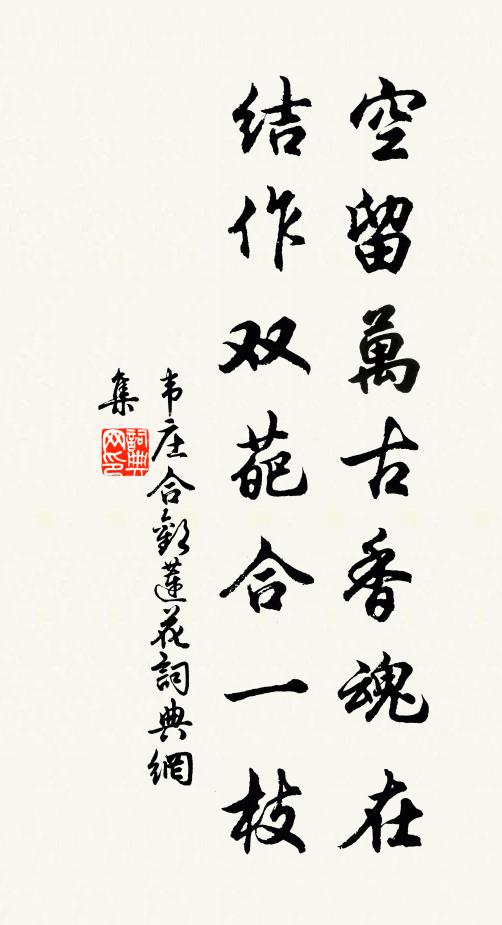 空留萬古香魂在
结作双葩合一枝
韦庄合歡莲花詞典網
集
詞典网印